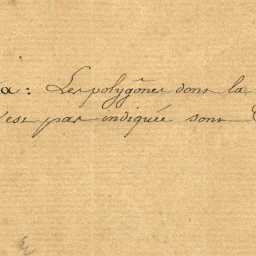 a : Les polygônes dont la
'est pas indiquée sont